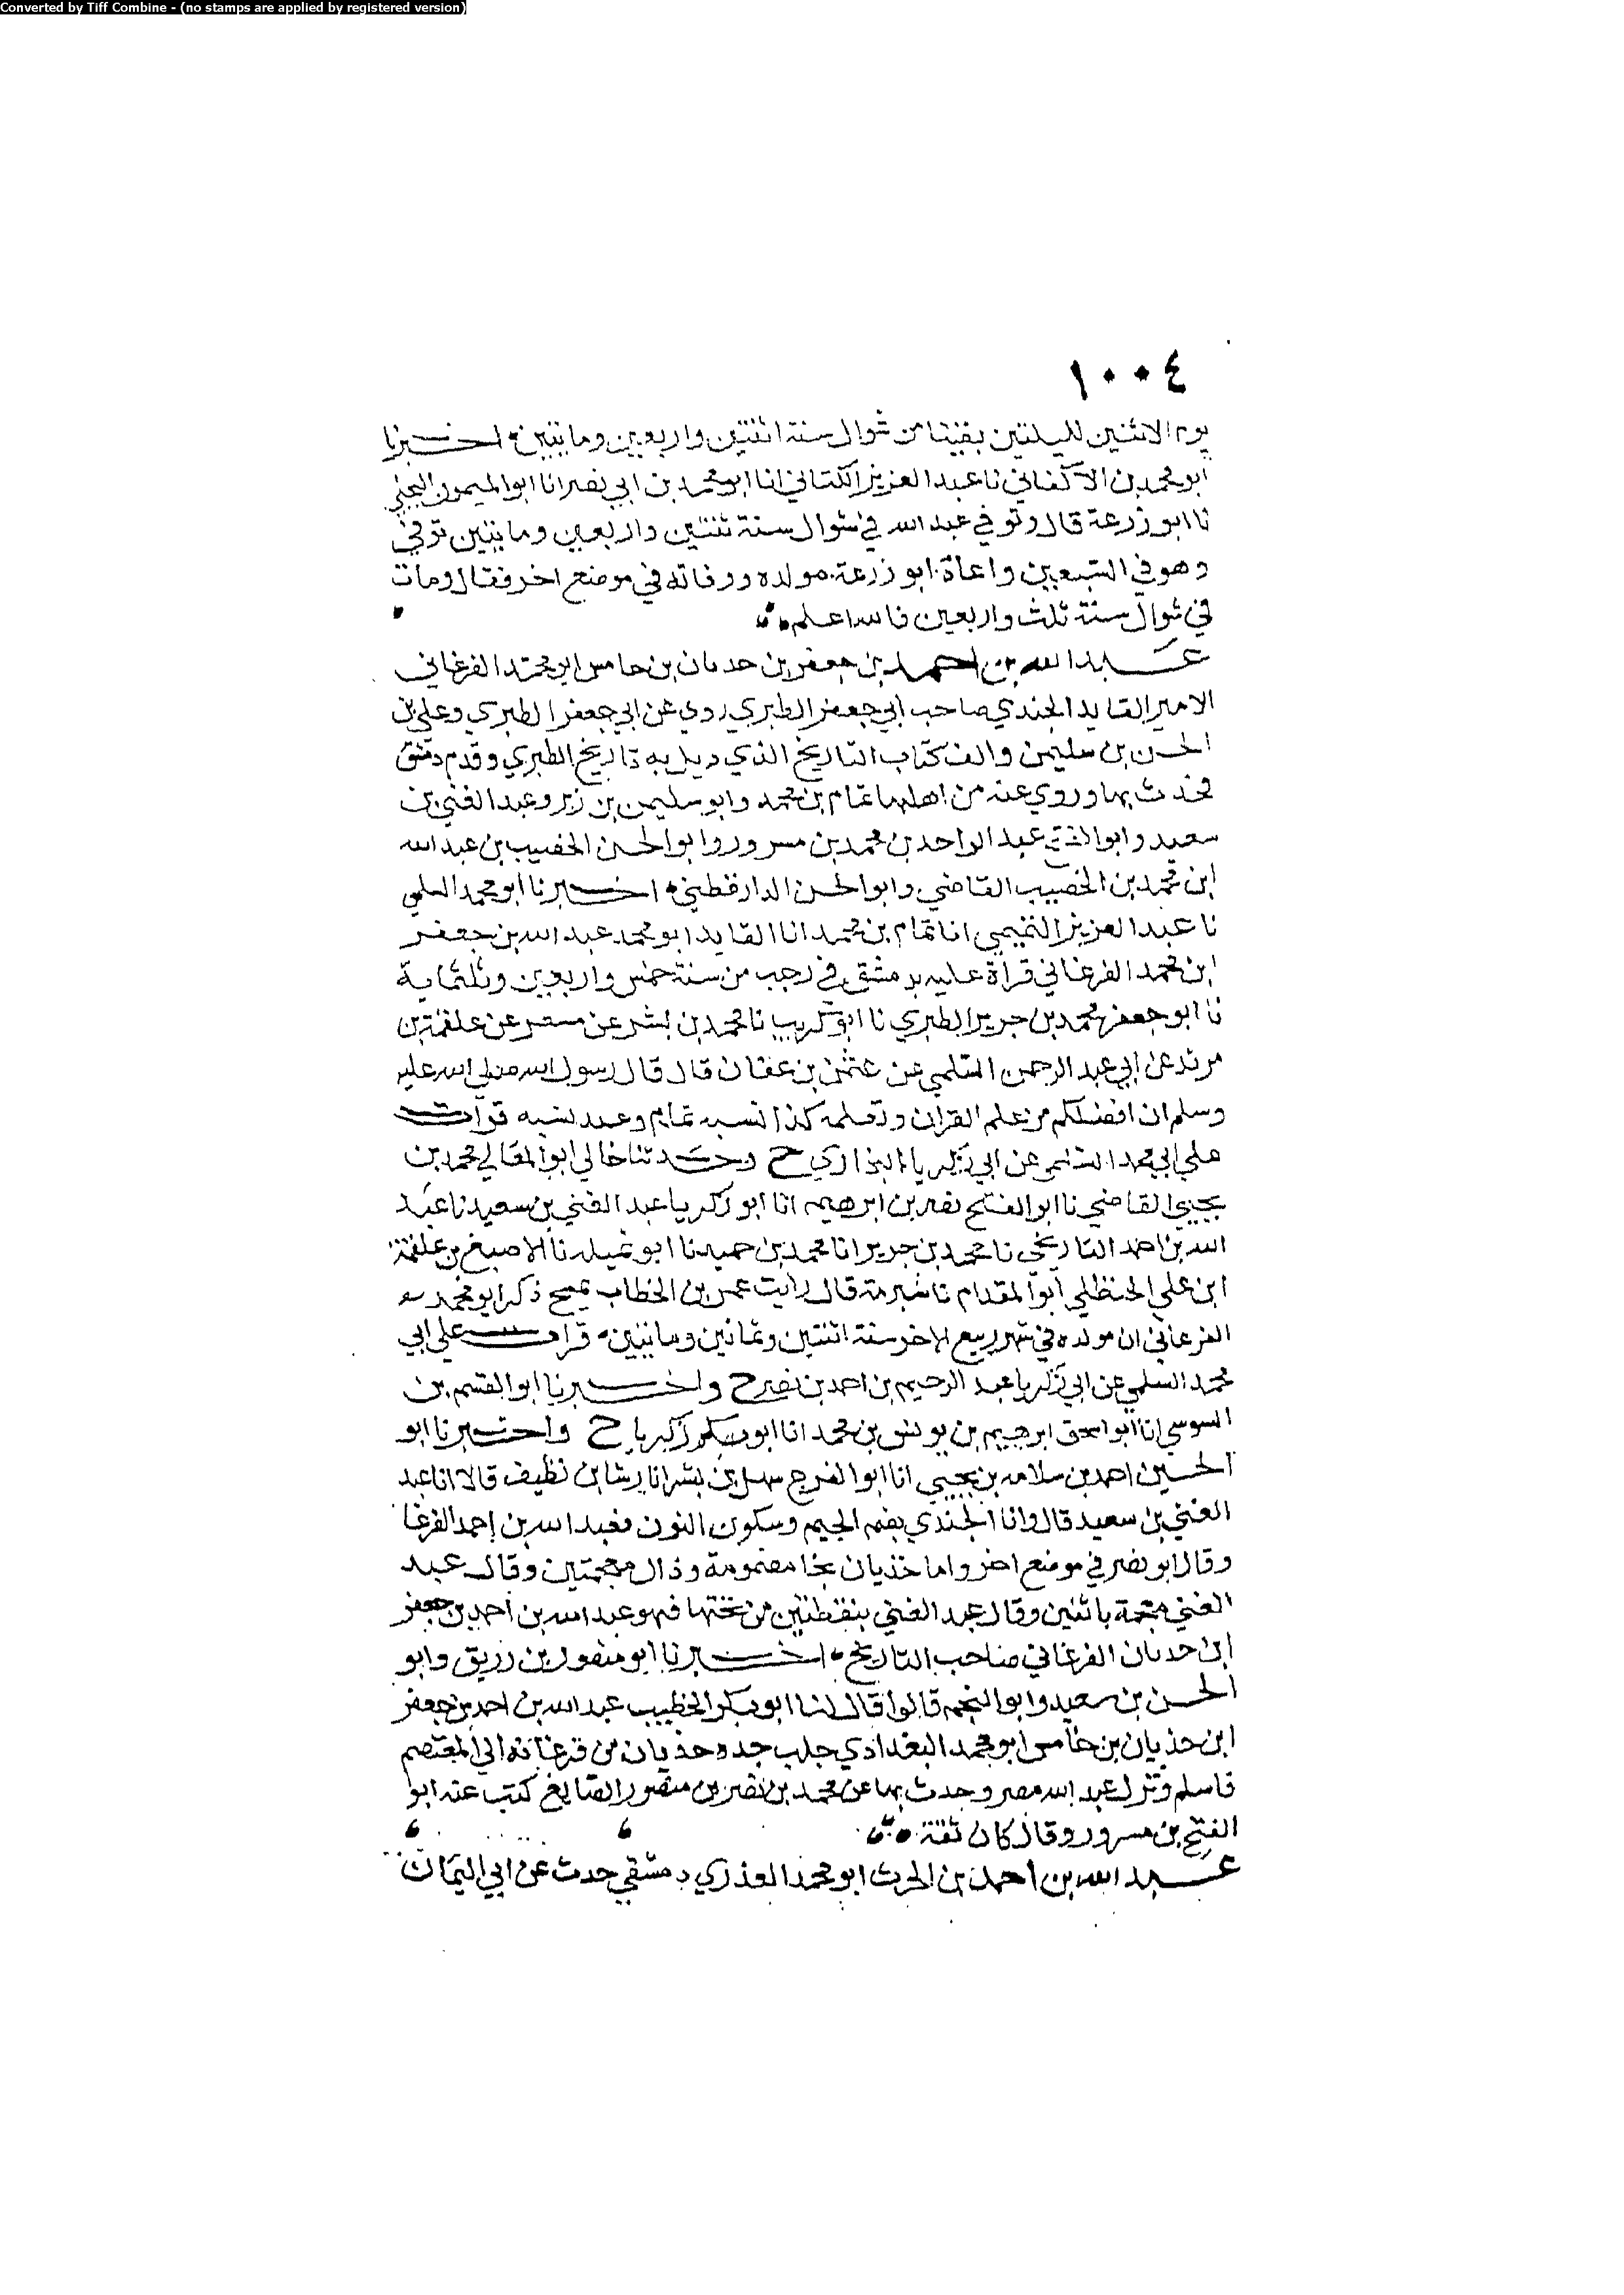 Converted by Tiff Combine - (no stamps are applied by registered version)
١٠٠٤
يوم الاثنين لليلتين بقيتا من شوال سنة اثنتين واربعين ومايتين اخبرنا
ابو محمد بن الاكفاني نا عبد العزيز الكتاني انا ابو محمد بن ابي نصر انا ابو الميمون البجلي
نا ابو زرعة قال وتوفي عبد الله في شوال سنة ثنتين واربعين ومايتين توفي
وهو في السبعين واعاد ابو زرعة مولده ووفاته في موضع اخر فقال ومات
في شوال سنة ثلث واربعين فالله اعلم
عبد الله بن احمد بن جعفر بن حذيان بن حامس ابو محمد الفرغاني
الامير القايد الجندي صاحب ابي جعفر الطبري روي عن ابي جعفر الطبري وعلي بن
الحسن بن سليمن والف كتاب التاريخ الذي ذيل به تاريخ الطبري وقدم دمشق
فحدث بها وروي عنه من اهلها تمام بن محمد وابو سليمن بن زبر وعبد الغني بن
سعيد وابو الفتح عبد الواحد بن محمد بن مسرور وابو الحسن الخصيب بن عبد الله
ابن محمد بن الخصيب القاضي وابو الحسن الدارقطني اخبرنا ابو محمد السلمي
نا عبد العزيز التميمي انا تمام بن محمد انا القايد ابو محمد عبد الله بن جعفر
ابن محمد الفرغاني قراة عليه بدمشق في رجب من سنة خمس واربعين وثلثماية
نا ابو جعفر محمد بن جرير الطبري نا ابو كريب نا محمد بن بشر عن مسعر عن علقمة بن
مرثد عن ابي عبد الرحمن السلمي عن عثمن بن عفان قال قال رسول الله صلي الله عليه
وسلم ان افضلكم من علم القران وتعلمه كذا نسبه تمام وعبد نسبه قرات
علي ابي محمد السلمي عن ابي زكريا البخاري ح وحدثنا خالي ابو المعالي محمد بن
يحيي القاضي نا ابو الفتح نصر بن ابرهيم انا ابو زكريا عبد الغني بن سعيد نا عبد
الله بن احمد التاريخي نا محمد بن جرير انا محمد بن حميد نا ابو تميله نا الاصبغ بن علقمة
ابن علي الحنظلي ابو المقدام نا شبرمة قال رايت عمر بن الخطاب يمسح ذكر ابو محمد
الفرغاني ان مولده في شهر ربيع الاخر سنة اثنتين وثمانين ومايتين قرات علي ابي
محمد السلمي عن ابي زكريا عبد الرحيم بن احمد بن نصر ح واخبرنا ابو القسم بن
السوسي انا ابو اسحق ابرهيم بن يونس بن محمد انا ابو زكريا ح واخبرنا ابو
الحسين احمد بن سلامه بن يحيي انا ابو الفرج سهل بن بشر انا رشا بن نظيف قالا انا عبد
الغني بن سعيد قال وانا الجندي بضم الجيم وسكون النون فعبد الله بن احمد الفرغا
وقال ابو نصر في موضع اخر واما خذيان بخا مضمومة وذال معجمتين وقال عبد
الغني معجمة باثنين وقال عبد الغني بنقطتين من تحتها فهو عبد الله بن احمد بن جعفر
ابن حذيان الفرغاني صاحب التاريخ اخبرنا ابو منصور بن زريق وابو
الحسن بن سعيد وابو النجم قالوا قال لنا ابو بكر الخطيب عبد الله بن احمد بن جعفر
ابن خذيان بن خامس ابو محمد البغدادي جلب جده خذيان من فرغانه الي المعتصم
فاسلم ونزل عبد الله مصر وحدث بها عن محمد بن نصر بن منصور الصايغ كتب عنه ابو
الفتح بن مسرور وقال كان ثقة
عبد الله بن احمد بن الحرث ابو محمد العذري دمشقي حدث عن ابي اليمان